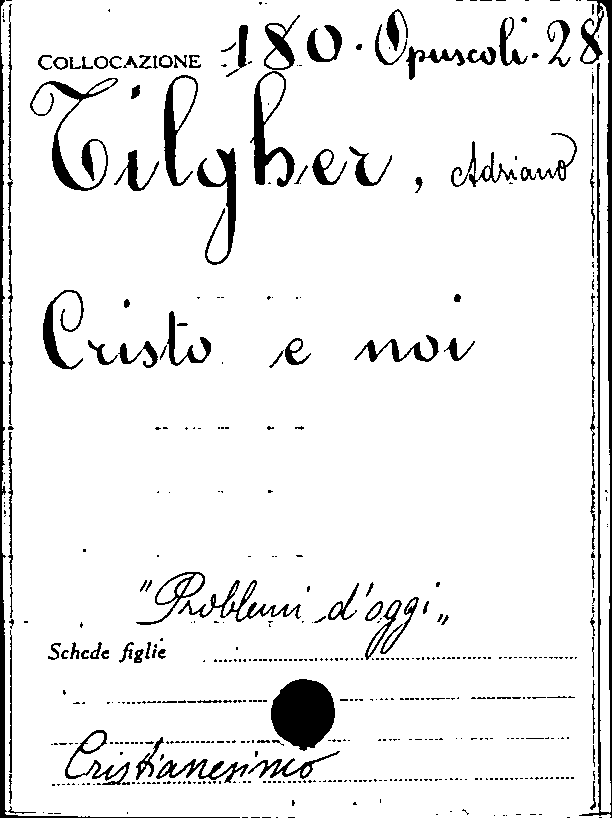 COLLOCAZIONE 180 · Opuscoli · 28
Tilgher, Adriano
Cristo e noi
"Problemi d'oggi„
Schede figlie
Cristianesimo